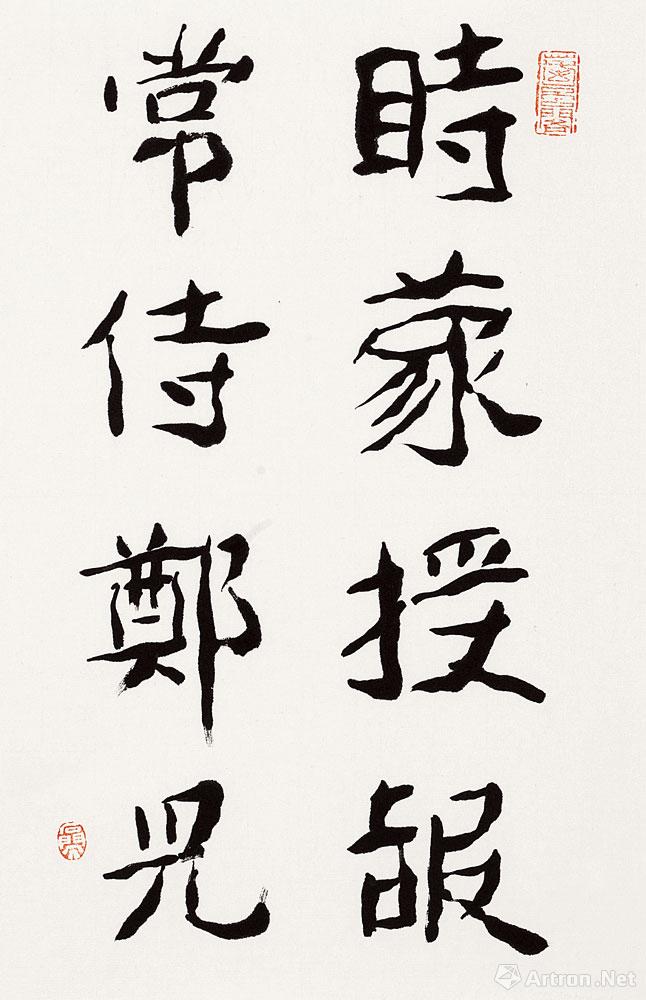 時蒙授
常侍鄭兄
Artron.Net